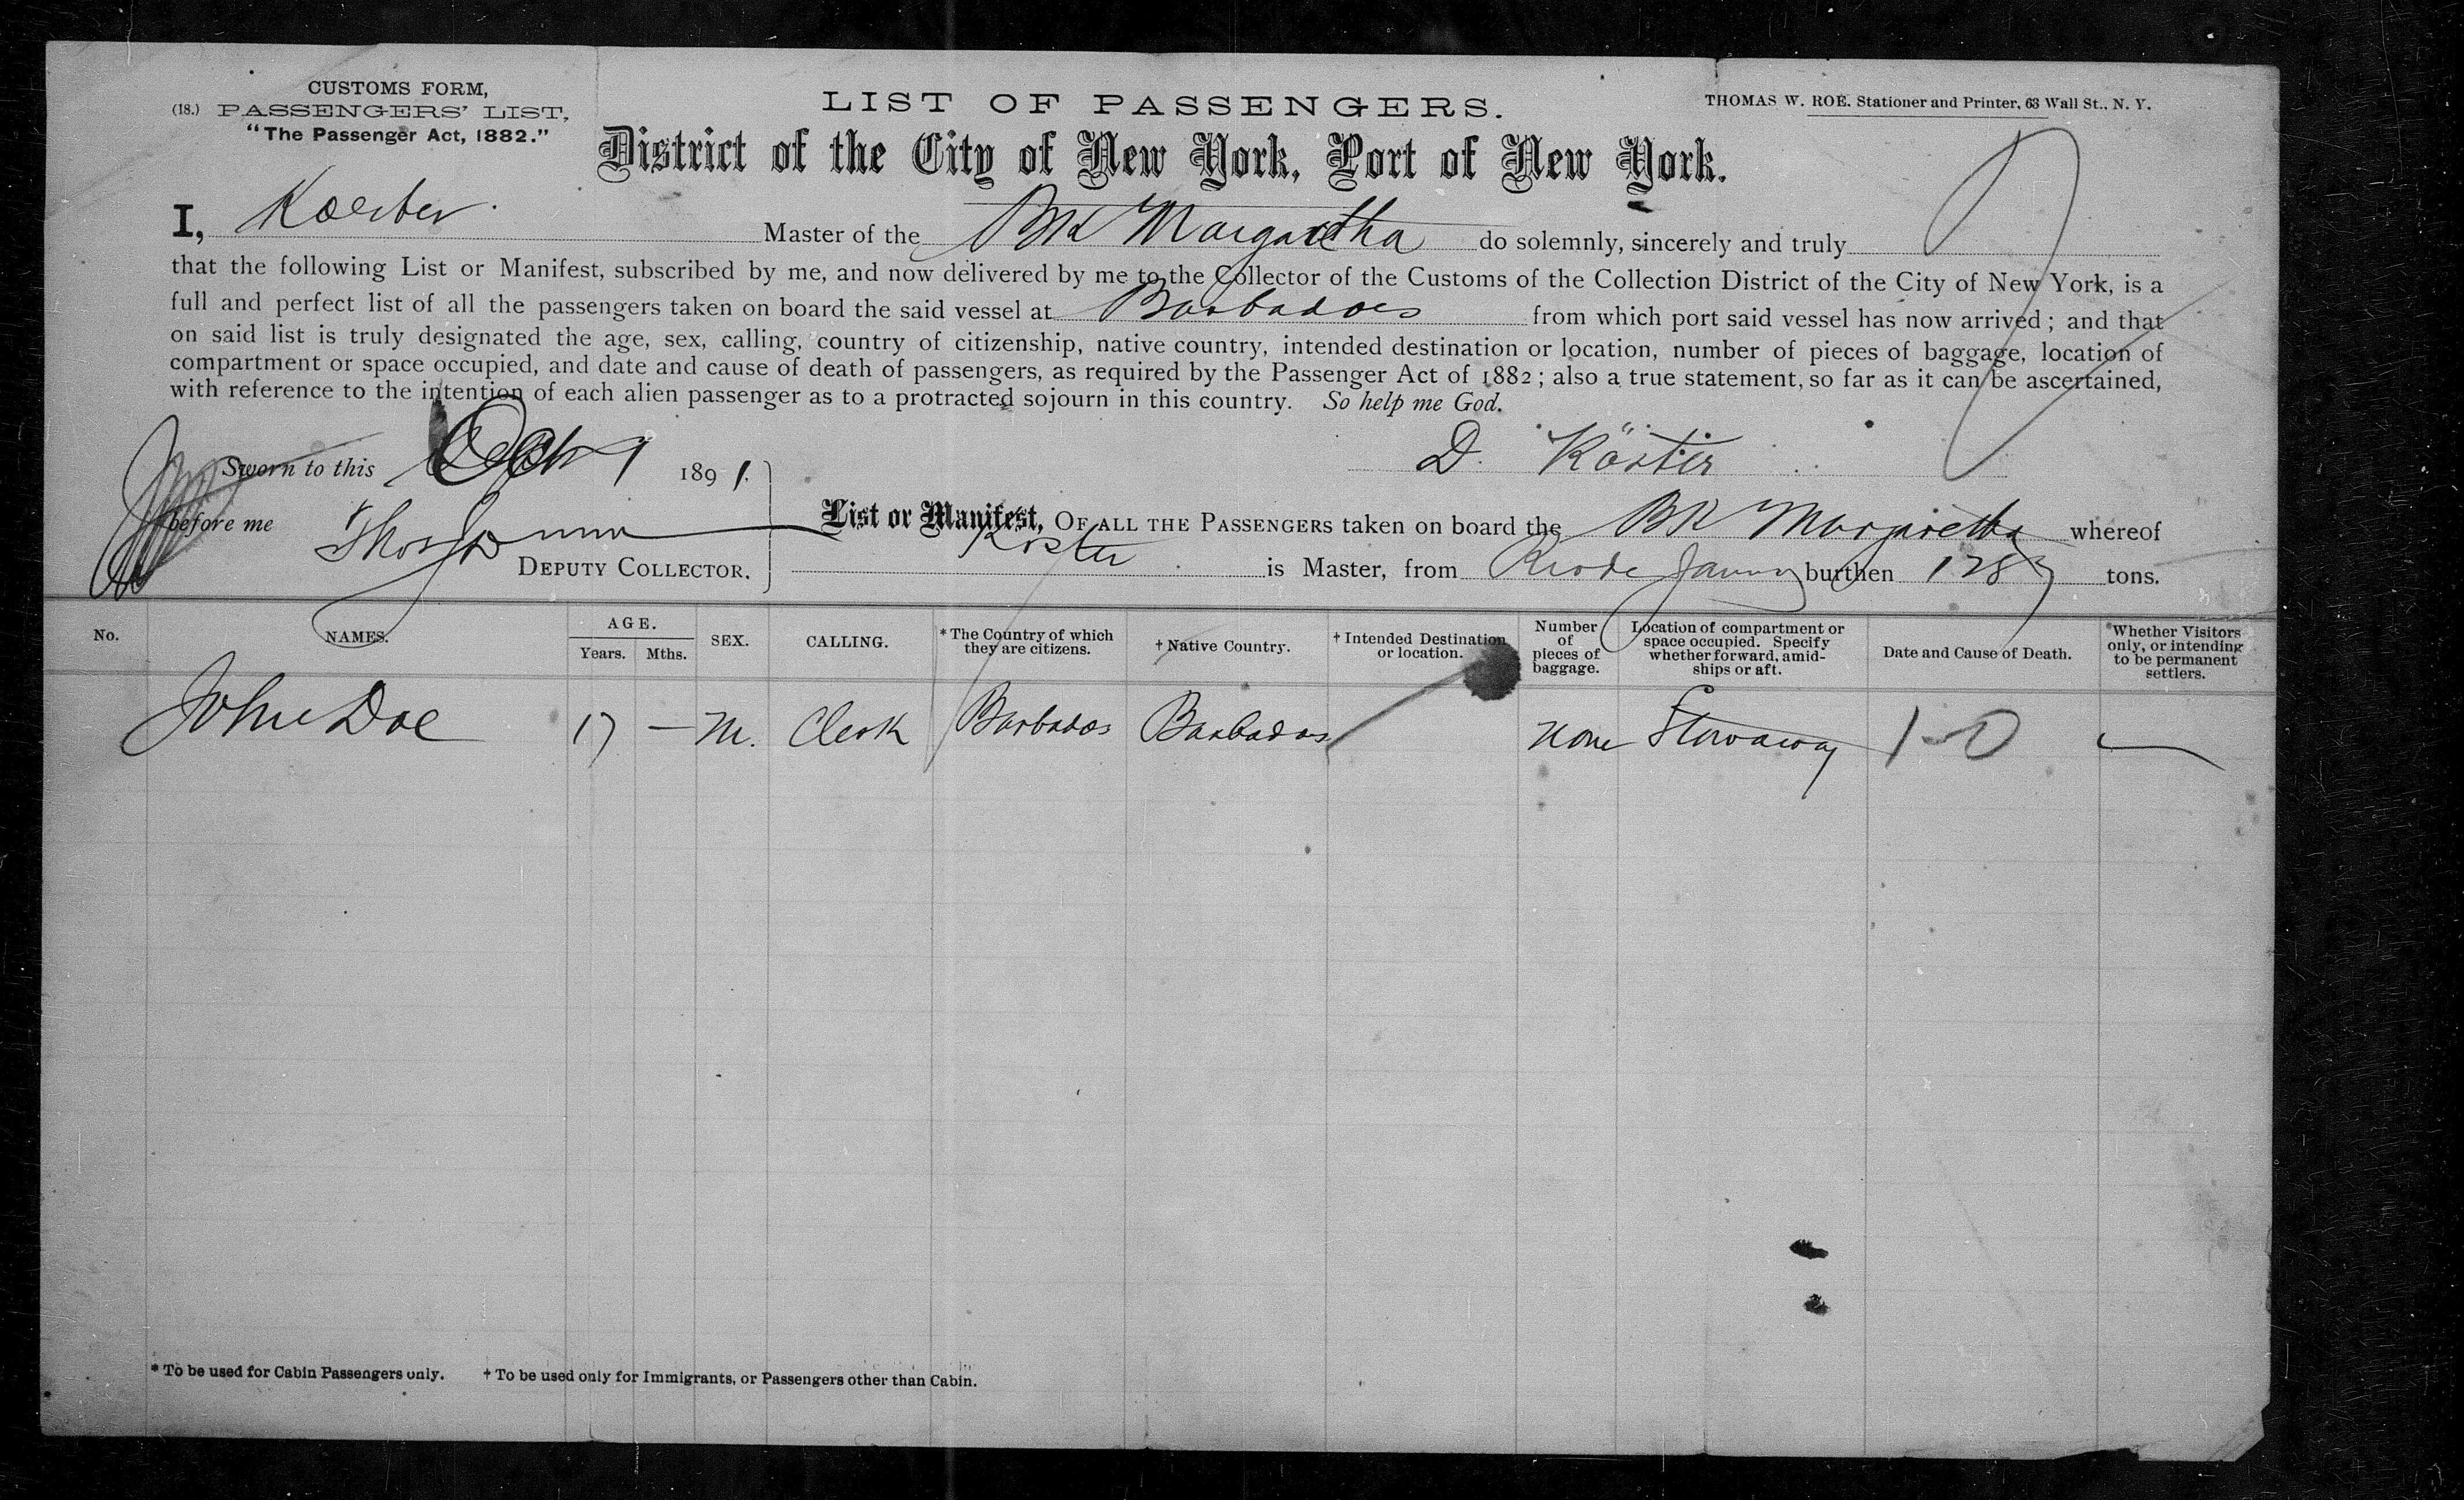 CUSTOMS FORM,
(18.) PASSENGERS' LIST,
"The Passenger Act, 1882."
LIST OF PASSENGERS.
THOMAS W. ROE, Stationer and Printer, 63 Wall St., N. Y.
District of the City of New York, Port of New York.
I, Koester Master of the Bk Margaretha do solemnly, sincerely and truly
that the following List or Manifest, subscribed by me, and now delivered by me to the Collector of the Customs of the Collection District of the City of New York, is a
full and perfect list of all the passengers taken on board the said vessel at Barbadoes from which port said vessel has now arrived; and that
on said list is truly designated the age, sex, calling, country of citizenship, native country, intended destination or location, number of pieces of baggage, location of
compartment or space occupied, and date and cause of death of passengers, as required by the Passenger Act of 1882; also a true statement, so far as it can be ascertained,
with reference to the intention of each alien passenger as to a protracted sojourn in this country. So help me God.
Sworn to this 9 1891.
D. Köster
before me Thos
DEPUTY COLLECTOR.
List or Manifest, OF ALL THE PASSENGERS taken on board the Bk Margaretha whereof
Köster is Master, from Rio de Janny burthen 1289 tons.
No. NAMES. AGE. Years. Mths. SEX. CALLING. * The Country of which they are citizens. † Native Country. † Intended Destination or location. Number of pieces of baggage. Location of compartment or space occupied. Specify whether forward, amidships or aft. Date and Cause of Death. Whether Visitors only, or intending to be permanent settlers.
John Doe 17 — M. Clerk Barbados Barbados none Stowaway 1-0
* To be used for Cabin Passengers only. † To be used only for Immigrants, or Passengers other than Cabin.